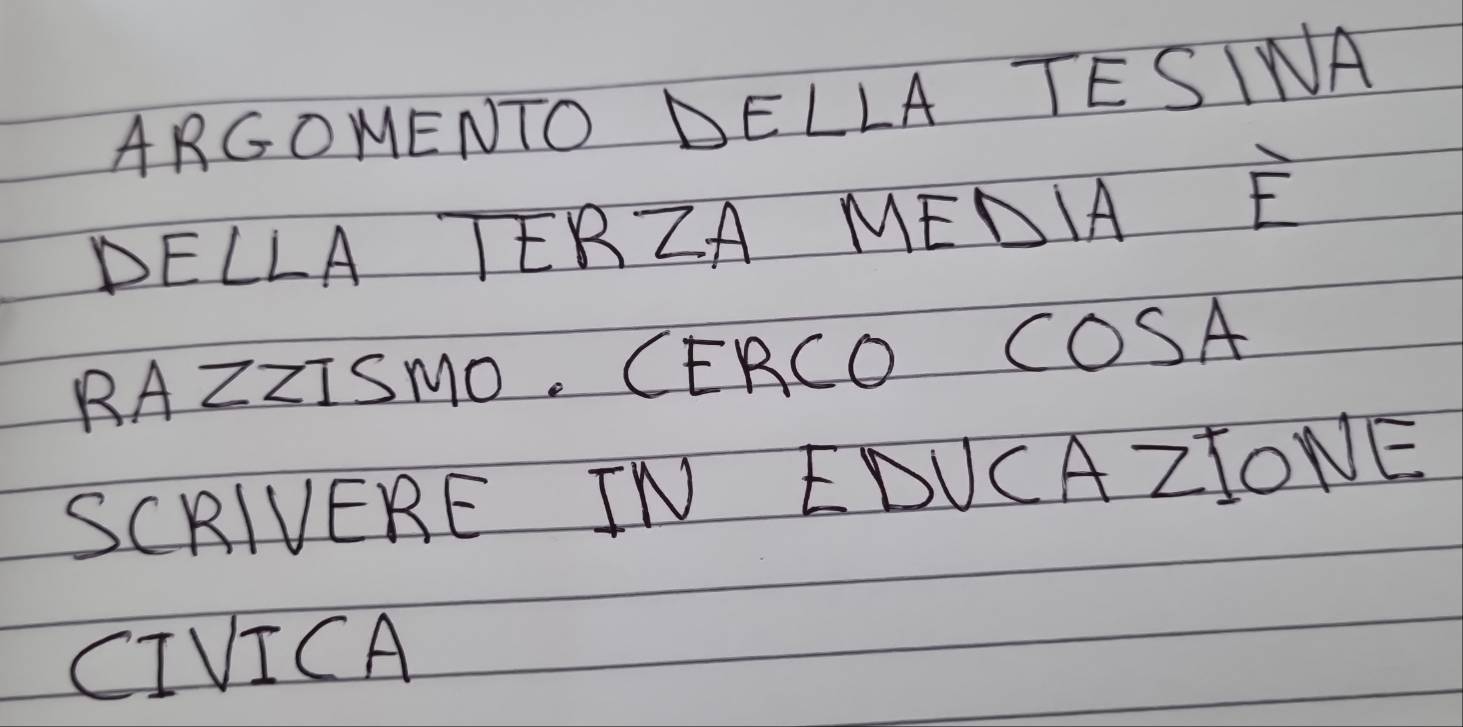 ARGOMENTO DELLA TESINA
DELLA TERZA MEDIA È
RAZZISMO. CERCO COSA
SCRIVERE IN EDUCAZIONE
CIVICA